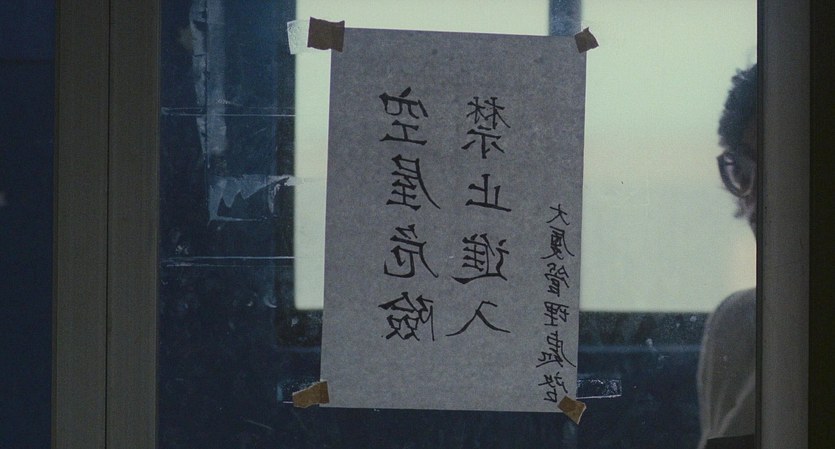 空屋危險
禁止進入
大廈管理處啓